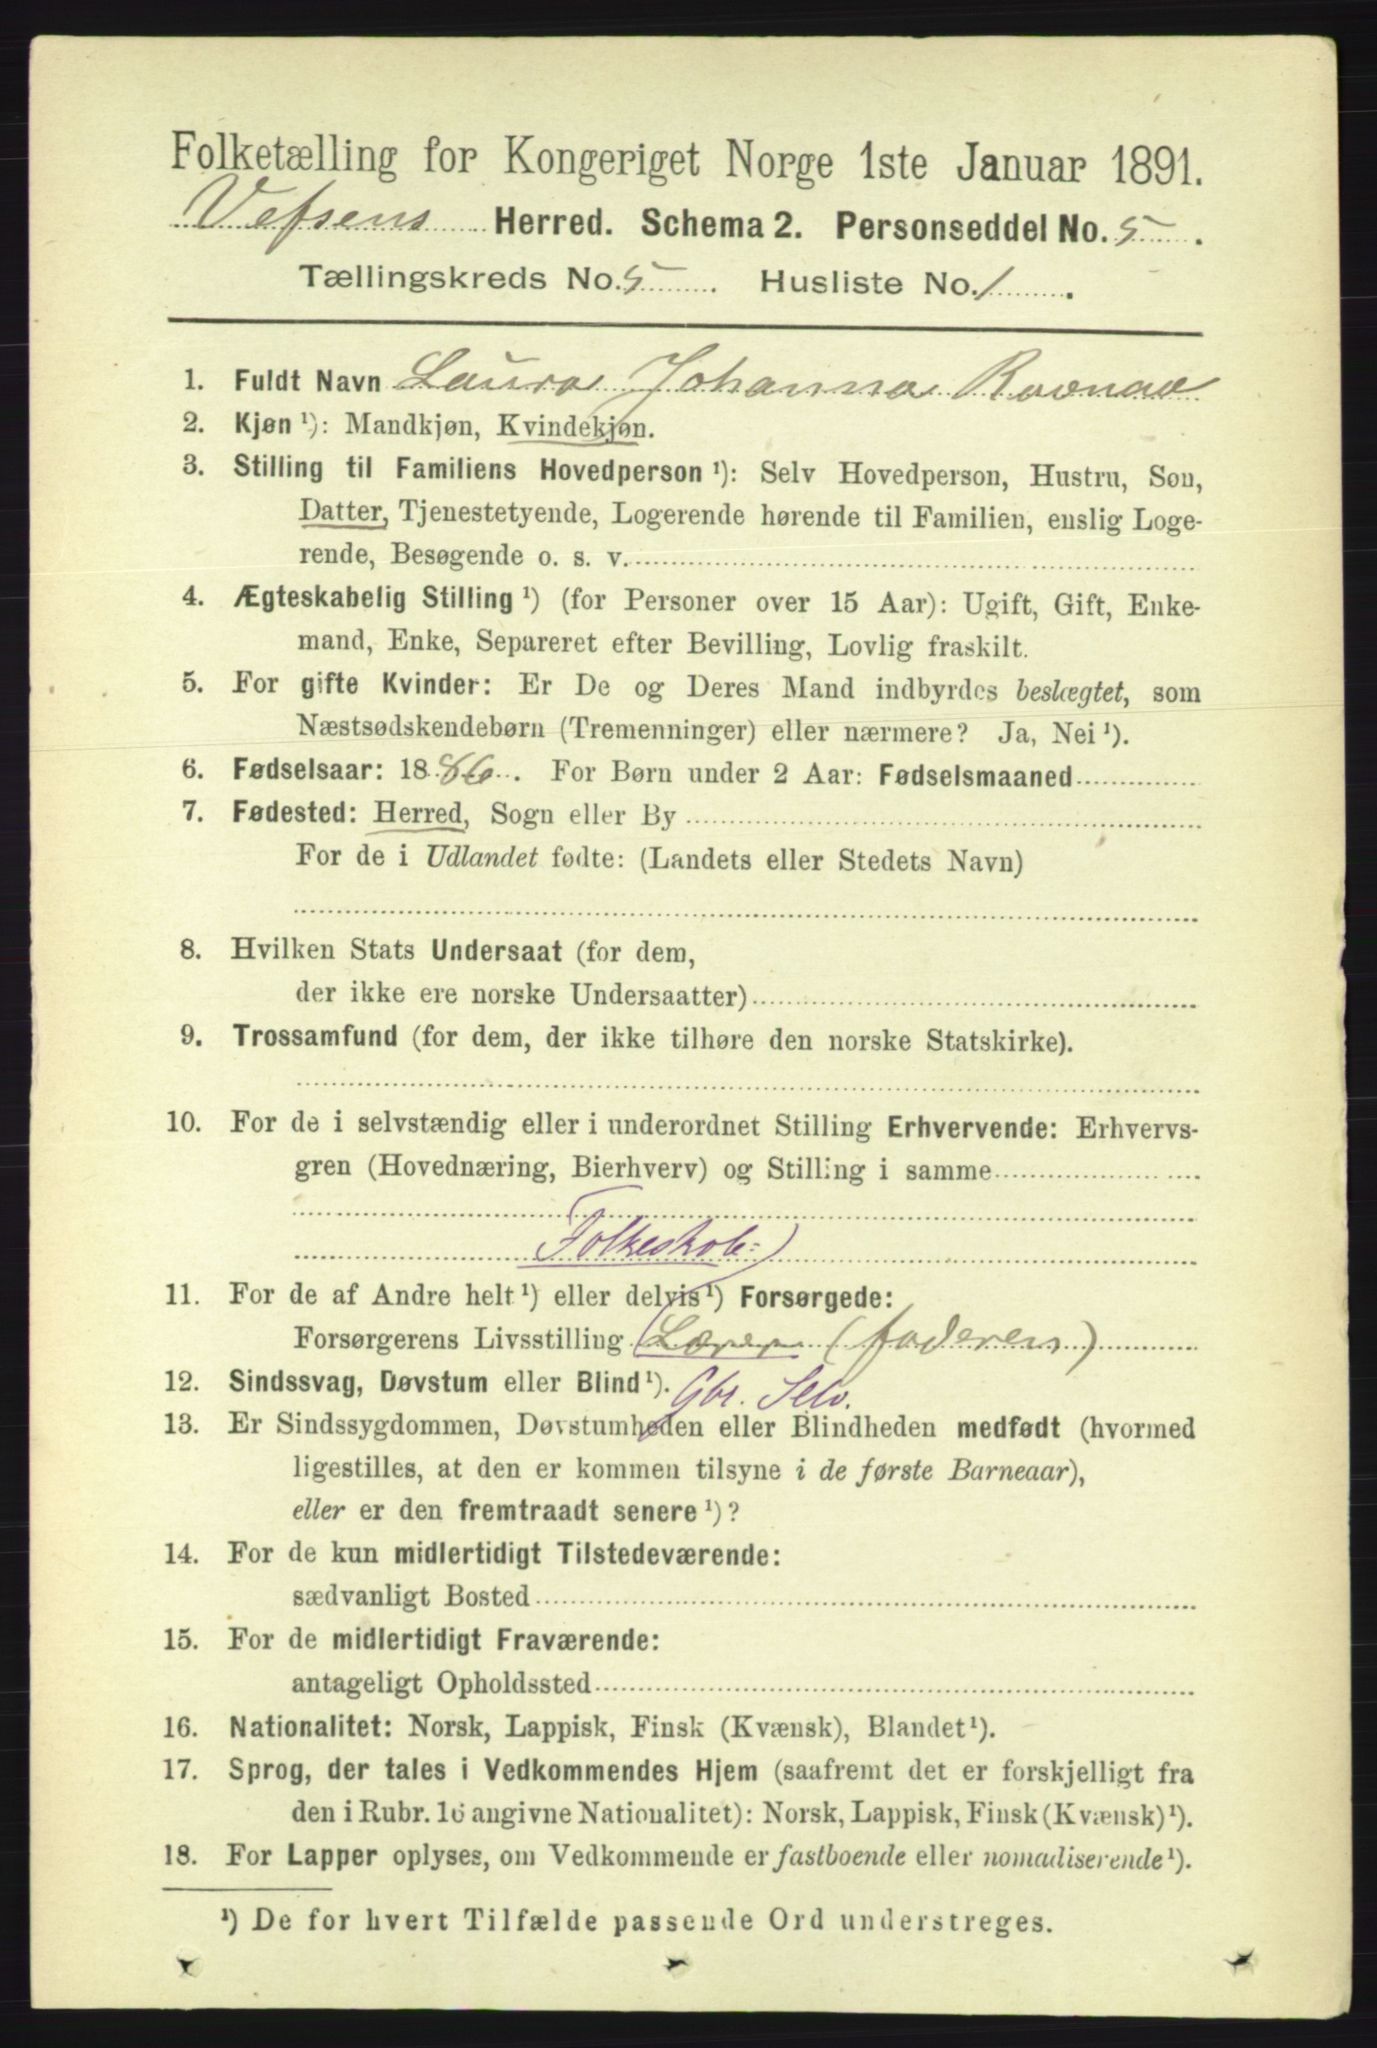 Folketælling for Kongeriget Norge 1ste Januar 1891.
Vefsens Herred. Schema 2. Personseddel No. 5.
Tællingskreds No. 5. Husliste No. 1.
1. Fuldt Navn Laura Johanna Ravnaa
2. Kjøn ¹): Mandkjøn, Kvindekjøn.
3. Stilling til Familiens Hovedperson ¹): Selv Hovedperson, Hustru, Søn,
Datter, Tjenestetyende, Logerende hørende til Familien, enslig Loge-
rende, Besøgende o. s. v.
4. Ægteskabelig Stilling ¹) (for Personer over 15 Aar): Ugift, Gift, Enke-
mand, Enke, Separeret efter Bevilling, Lovlig fraskilt.
5. For gifte Kvinder: Er De og Deres Mand indbyrdes beslægtet, som
Næstsødskendebørn (Tremenninger) eller nærmere? Ja, Nei ¹).
6. Fødselsaar: 1886. For Børn under 2 Aar: Fødselsmaaned
7. Fødested: Herred, Sogn eller By
For de i Udlandet fødte: (Landets eller Stedets Navn)
8. Hvilken Stats Undersaat (for dem,
der ikke ere norske Undersaatter)
9. Trossamfund (for dem, der ikke tilhøre den norske Statskirke).
10. For de i selvstændig eller i underordnet Stilling Erhvervende: Erhvervs-
gren (Hovednæring, Bierhverv) og Stilling i samme
Folkeskole:
11. For de af Andre helt ¹) eller delvis ¹) Forsørgede:
Forsørgerens Livsstilling Lærer (faderen)
12. Sindssvag, Døvstum eller Blind ¹). Gbr. Selv.
13. Er Sindssygdommen, Døvstumheden eller Blindheden medfødt (hvormed
ligestilles, at den er kommen tilsyne i de første Barneaar),
eller er den fremtraadt senere ¹)?
14. For de kun midlertidigt Tilstedeværende:
sædvanligt Bosted
15. For de midlertidigt Fraværende:
antageligt Opholdssted
16. Nationalitet: Norsk, Lappisk, Finsk (Kvænsk), Blandet ¹).
17. Sprog, der tales i Vedkommendes Hjem (saafremt det er forskjelligt fra
den i Rubr. 16 angivne Nationalitet): Norsk, Lappisk, Finsk (Kvænsk) ¹).
18. For Lapper oplyses, om Vedkommende er fastboende eller nomadiserende ¹).
¹) De for hvert Tilfælde passende Ord understreges.